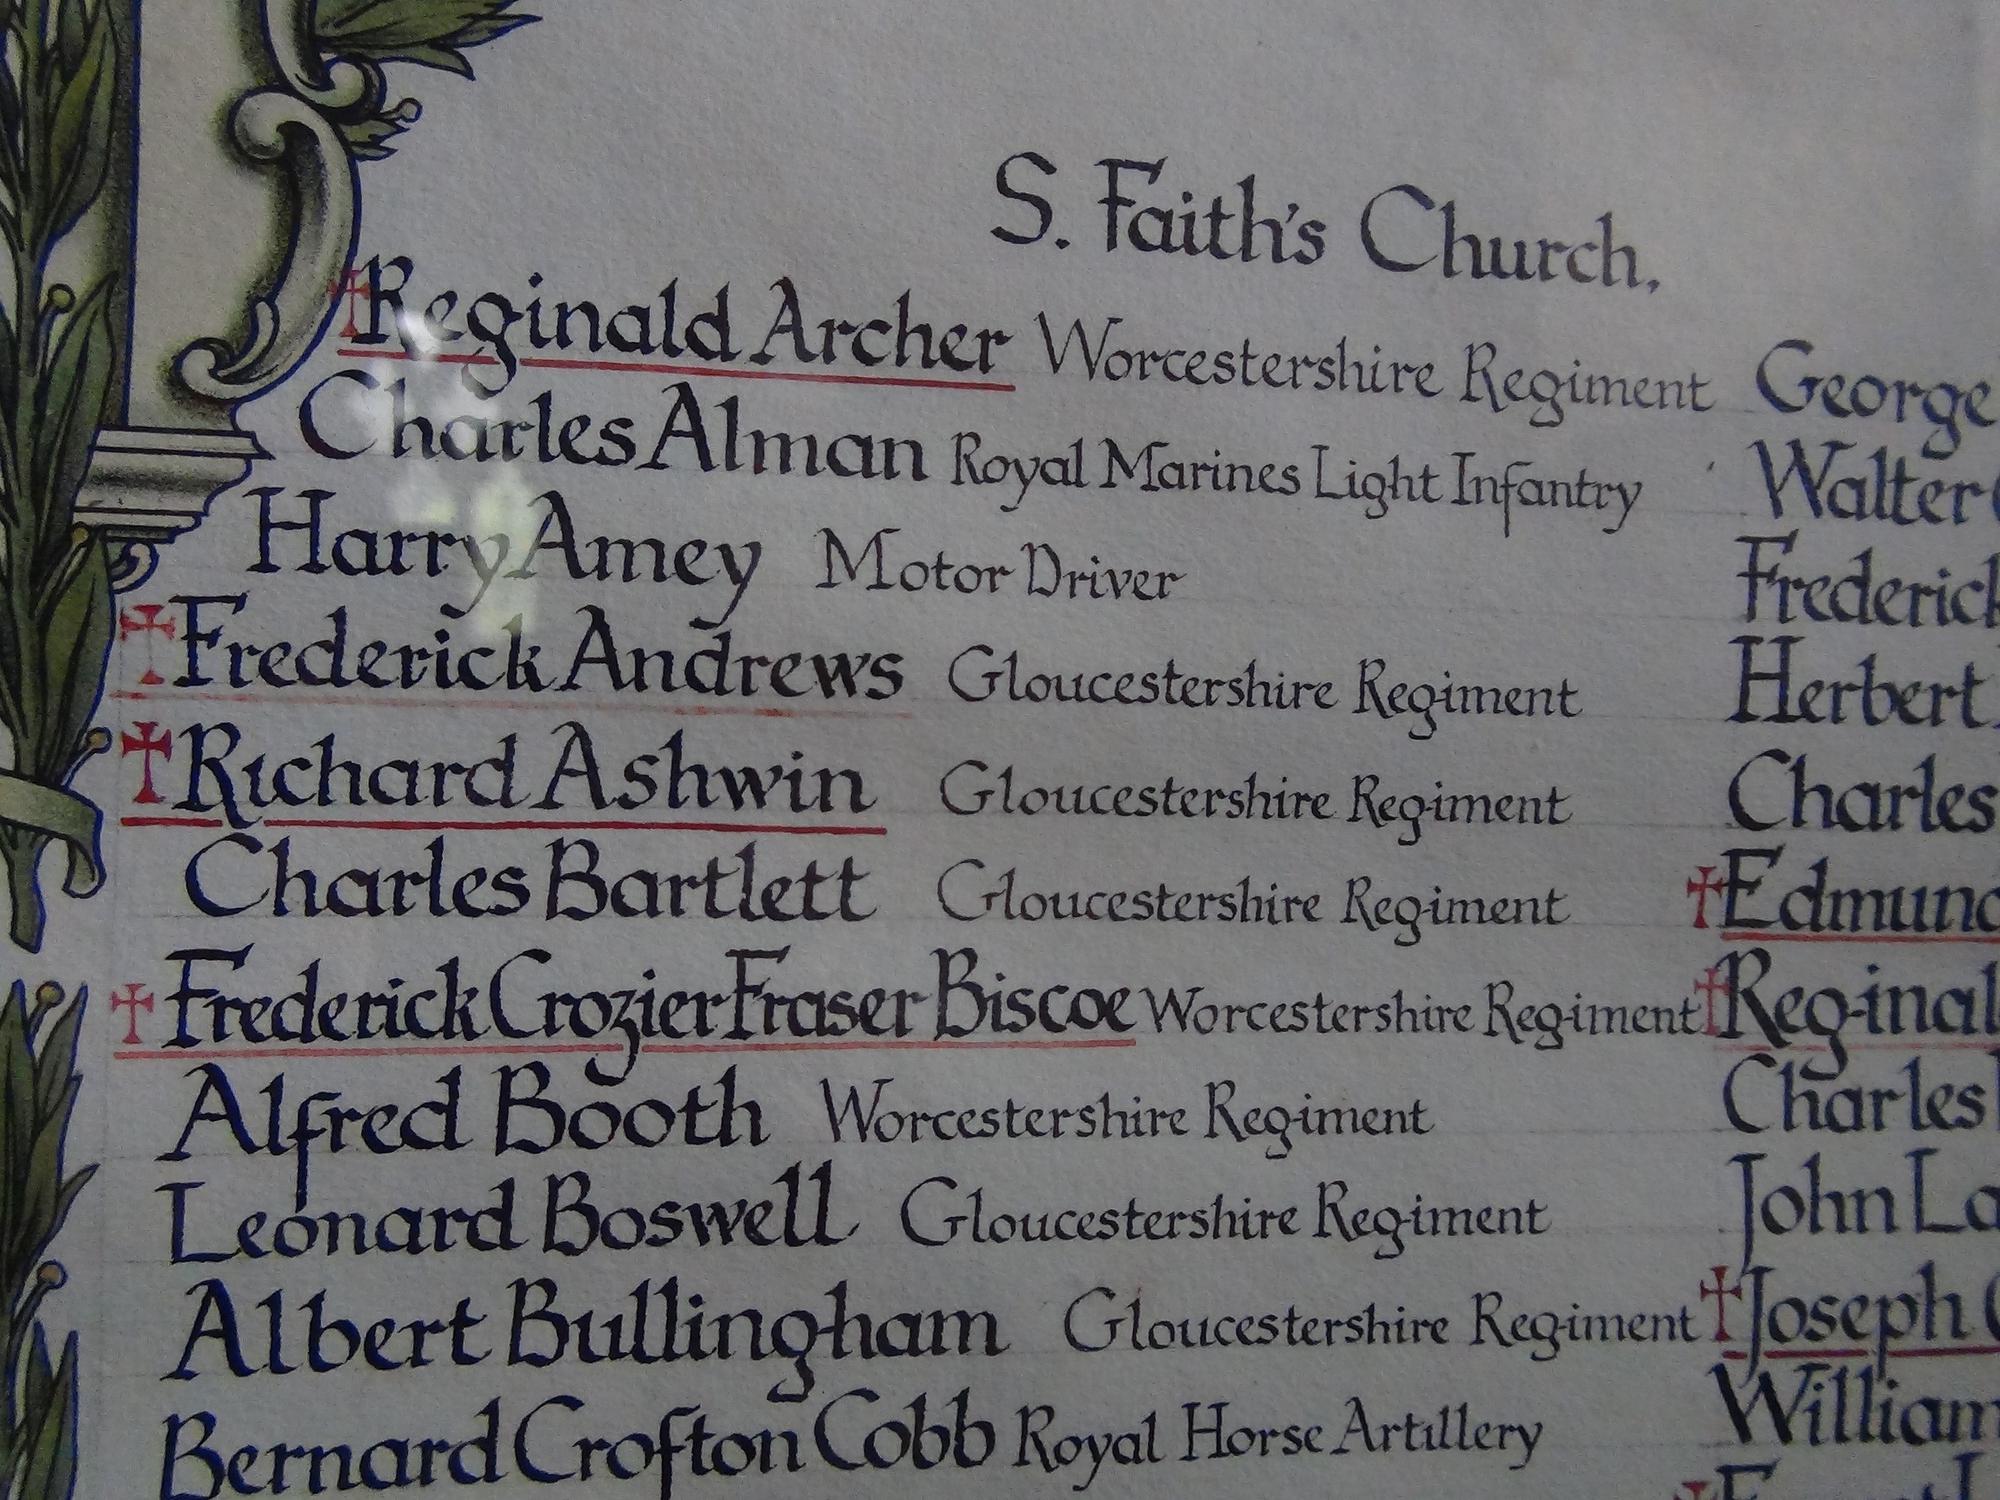 S. Faith's Church.
†Reginald Archer Worcestershire Regiment
Charles Alman Royal Marines Light Infantry
Harry Amey Motor Driver
†Frederick Andrews Gloucestershire Regiment
†Richard Ashwin Gloucestershire Regiment
Charles Bartlett Gloucestershire Regiment
†Frederick Crozier Fraser Biscoe Worcestershire Regiment
Alfred Booth Worcestershire Regiment
Leonard Boswell Gloucestershire Regiment
Albert Bullingham Gloucestershire Regiment
Bernard Crofton Cobb Royal Horse Artillery
George
Walter
Frederick
Herbert
Charles
†Edmund
†Reginal
Charles
John La
†Joseph
William